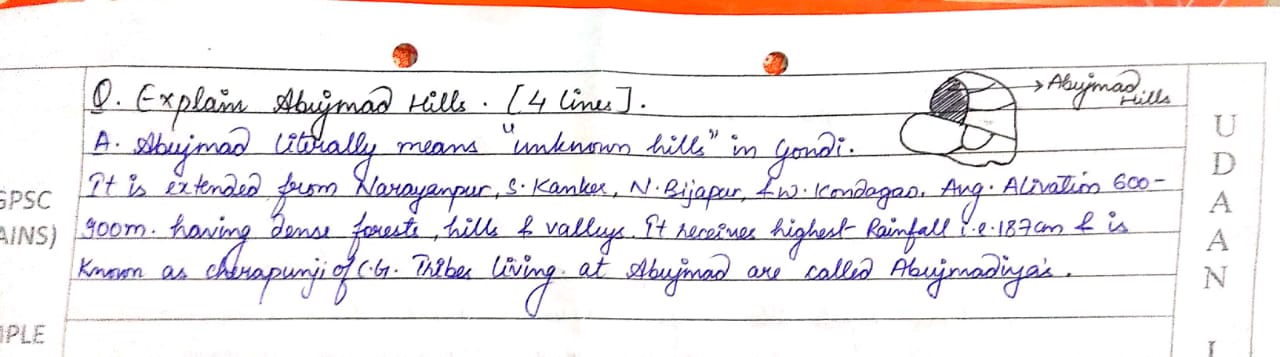 Q. Explain Abujmad Hills. [4 lines].
→ Abujmad Hills
A. Abujmad literally means "unknown hills" in Gondi.
It is extended from Narayanpur, S. Kanker, N. Bijapur, & W. Kondagao. Avg. Alivation 600-
900m. having dense forests, hills & valleys. It receives highest Rainfall i.e. 187cm & is
Known as cherapunji of C.G. Tribes living at Abujmad are called Abujmadiya's.
GPSC
AINS)
MPLE
U
D
A
A
N